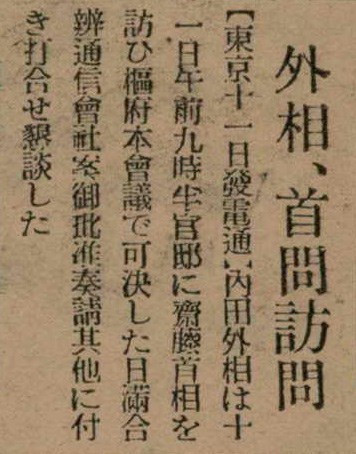 外相、首問訪問
【東京十一日發電通】內田外相は十
一日午前九時半官邸に齋藤首相を
訪ひ樞府本會議で可決した日滿合
辨通信會社案御批准奏請其他に付
き打合せ懇談した